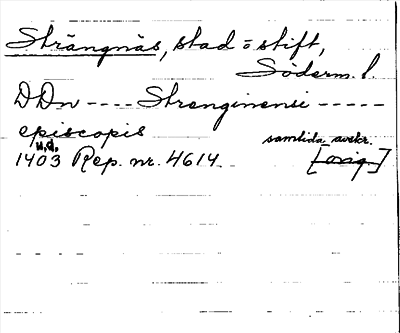 Strängnäs, stad o stift,
Söderm. l.
D Dn ---- Strenginensi -----
episcopis
samtida avskr.
u.d.
1403 Rep. nr. 4614 [orig.]